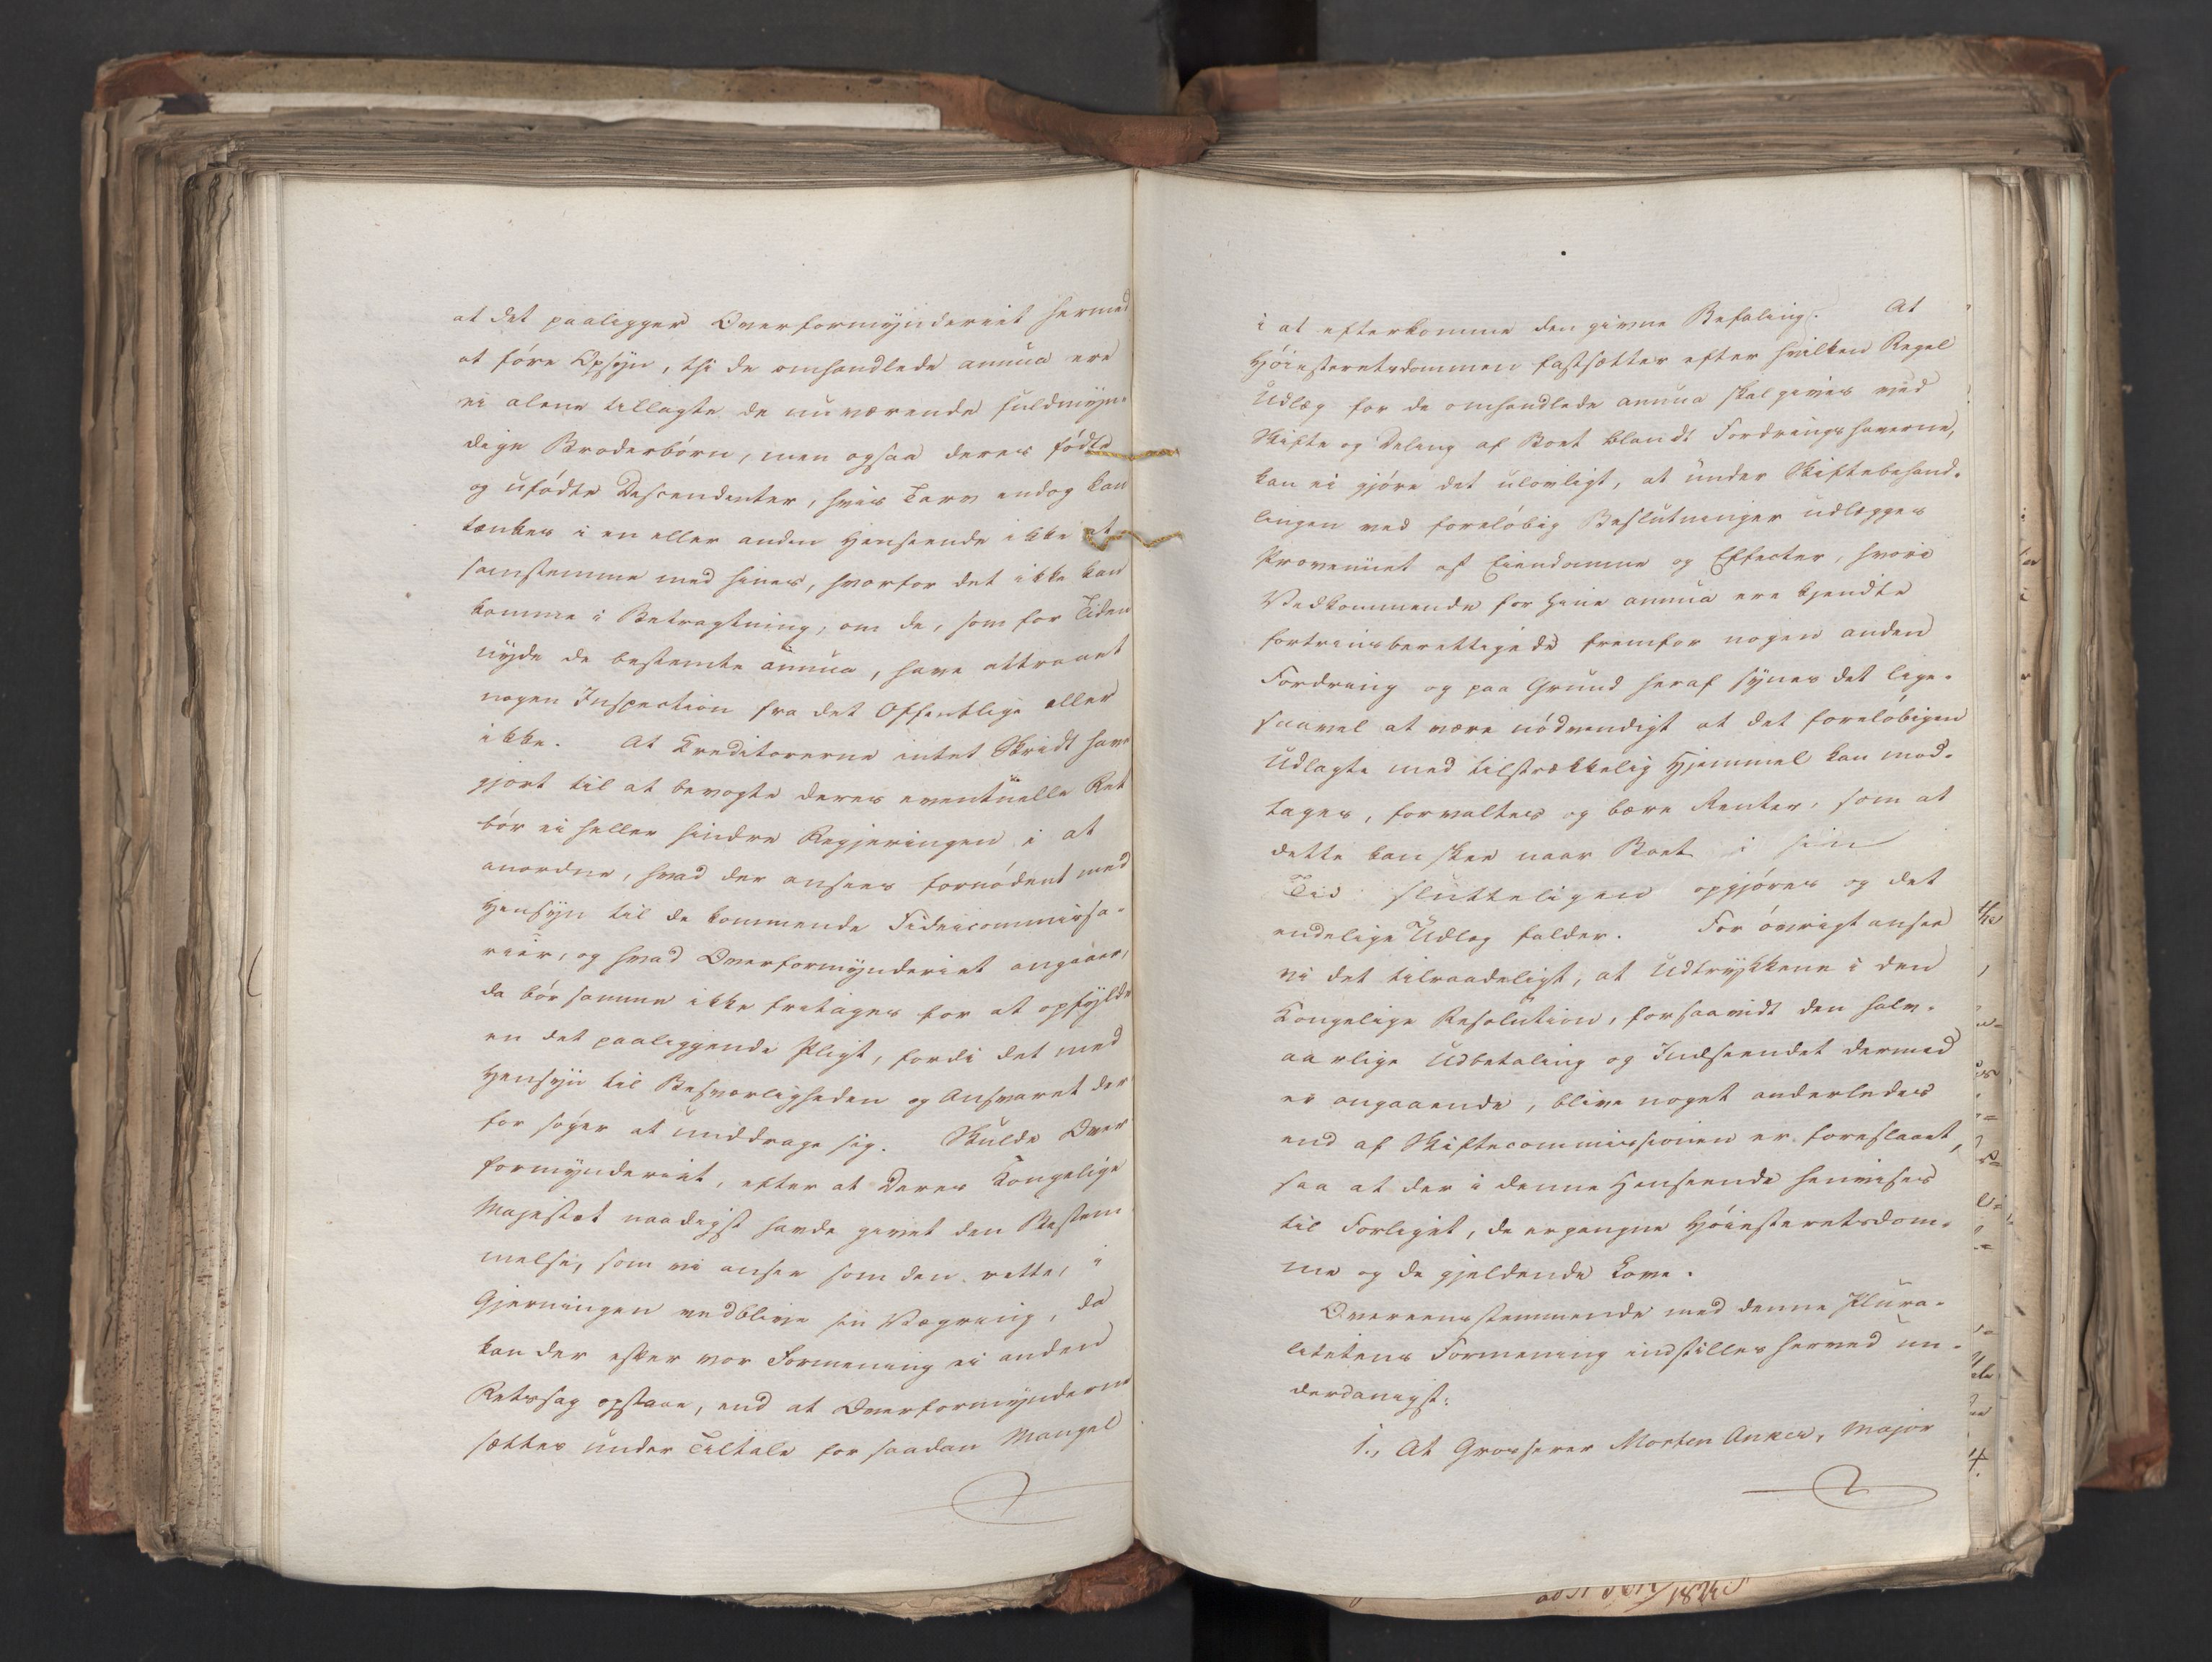 at det paaligger Overformynderiet hermed
at føre Opsyn, thi de omhandlede annua ere
ei alene tillagte de nuværende fuldmyn-
dige Broderbörn, men ogsaa deres fødte
og ufødte Descendenter, hvis Tarv endog kan
tænkes i en eller anden Henseende ikke at
samstemme med hines, hvorfor det ikke kan
komme i Betragtning, om de, som for Tiden
nyde de bestemte annua, have attraaet
nogen Inspection fra det Offentlige eller
ikke. At Creditorerne intet Skridt have
gjort til at bevogte deres eventuelle Ret
bör ei heller hindre Regjeringen i at
anordne, hvad der ansees fornödent med
Hensyn til de kommende Fideicommissa-
rier, og hvad Overformynderiet angaaer,
da bör samme ikke fritages for at opfylde
en det paaliggende Pligt, fordi det med
Hensyn til Besværligheden og Ansvaret der
for söger at unddrage sig. Skulde Over
formynderiet, efter at Deres Kongelige
Majestæt naadigst havde givet den Bestem
melse, som vi ansee som den rette, i
Gjerningen vedblive sin Vægring, da
kan der efter vor Formening ei anden
Retssag opstaae, end at Overformynderne
sættes under Tiltale for saadan Mangel
i at efterkomme den givne Befaling. At
Höiesteretsdommen fastsætter efter hvilken Regel
Udlæg for de omhandlede annua skal gives ved
Skifte og Deling af Boet blandt Fordringshaverne,
kan ei gjöre det ulovligt, at under Skiftebehand-
lingen ved forelöbig Beslutninger udlægges
Provenüet af Eiendomme og Effecter, hvori
Vedkommende for hine annua ere kjendte
fortrinsberettigede fremfor nogen anden
Fordring og paa Grund heraf synes det lige-
saavel at være nödvendigt at det forelöbigen
Udlagte med tilstrækkelig Hjemmel kan mod-
tages, forvaltes og bære Renter, som at
dette kan skee naar Boet i sin
Tid slutteligen opgjöres og det
endelige Udlæg falder. For övrigt ansee
vi det tilraadeligt, at Udtrykkene i den
Kongelige Resolution, forsaavidt den halv-
aarlige Udbetaling og Indseendet dermed
er angaaende, blive noget anderledes
end af Skiftecommissionen er foreslaaet,
saa at der i denne Henseende henvises
til Forliget, de ergangne Höiesteretsdom-
me og de gjeldende Love.
Overeensstemmende med denne Plura-
litetens Formening indstilles herved un-
derdanigst:
1., At Grosserer Morten Anker, Major